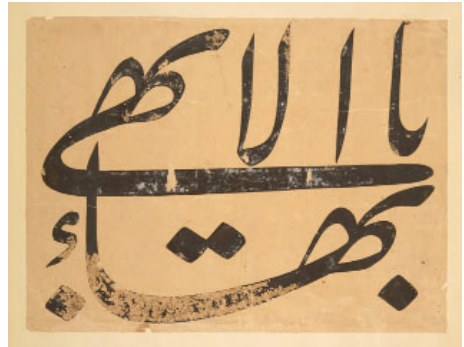 يا بهاء الابهى